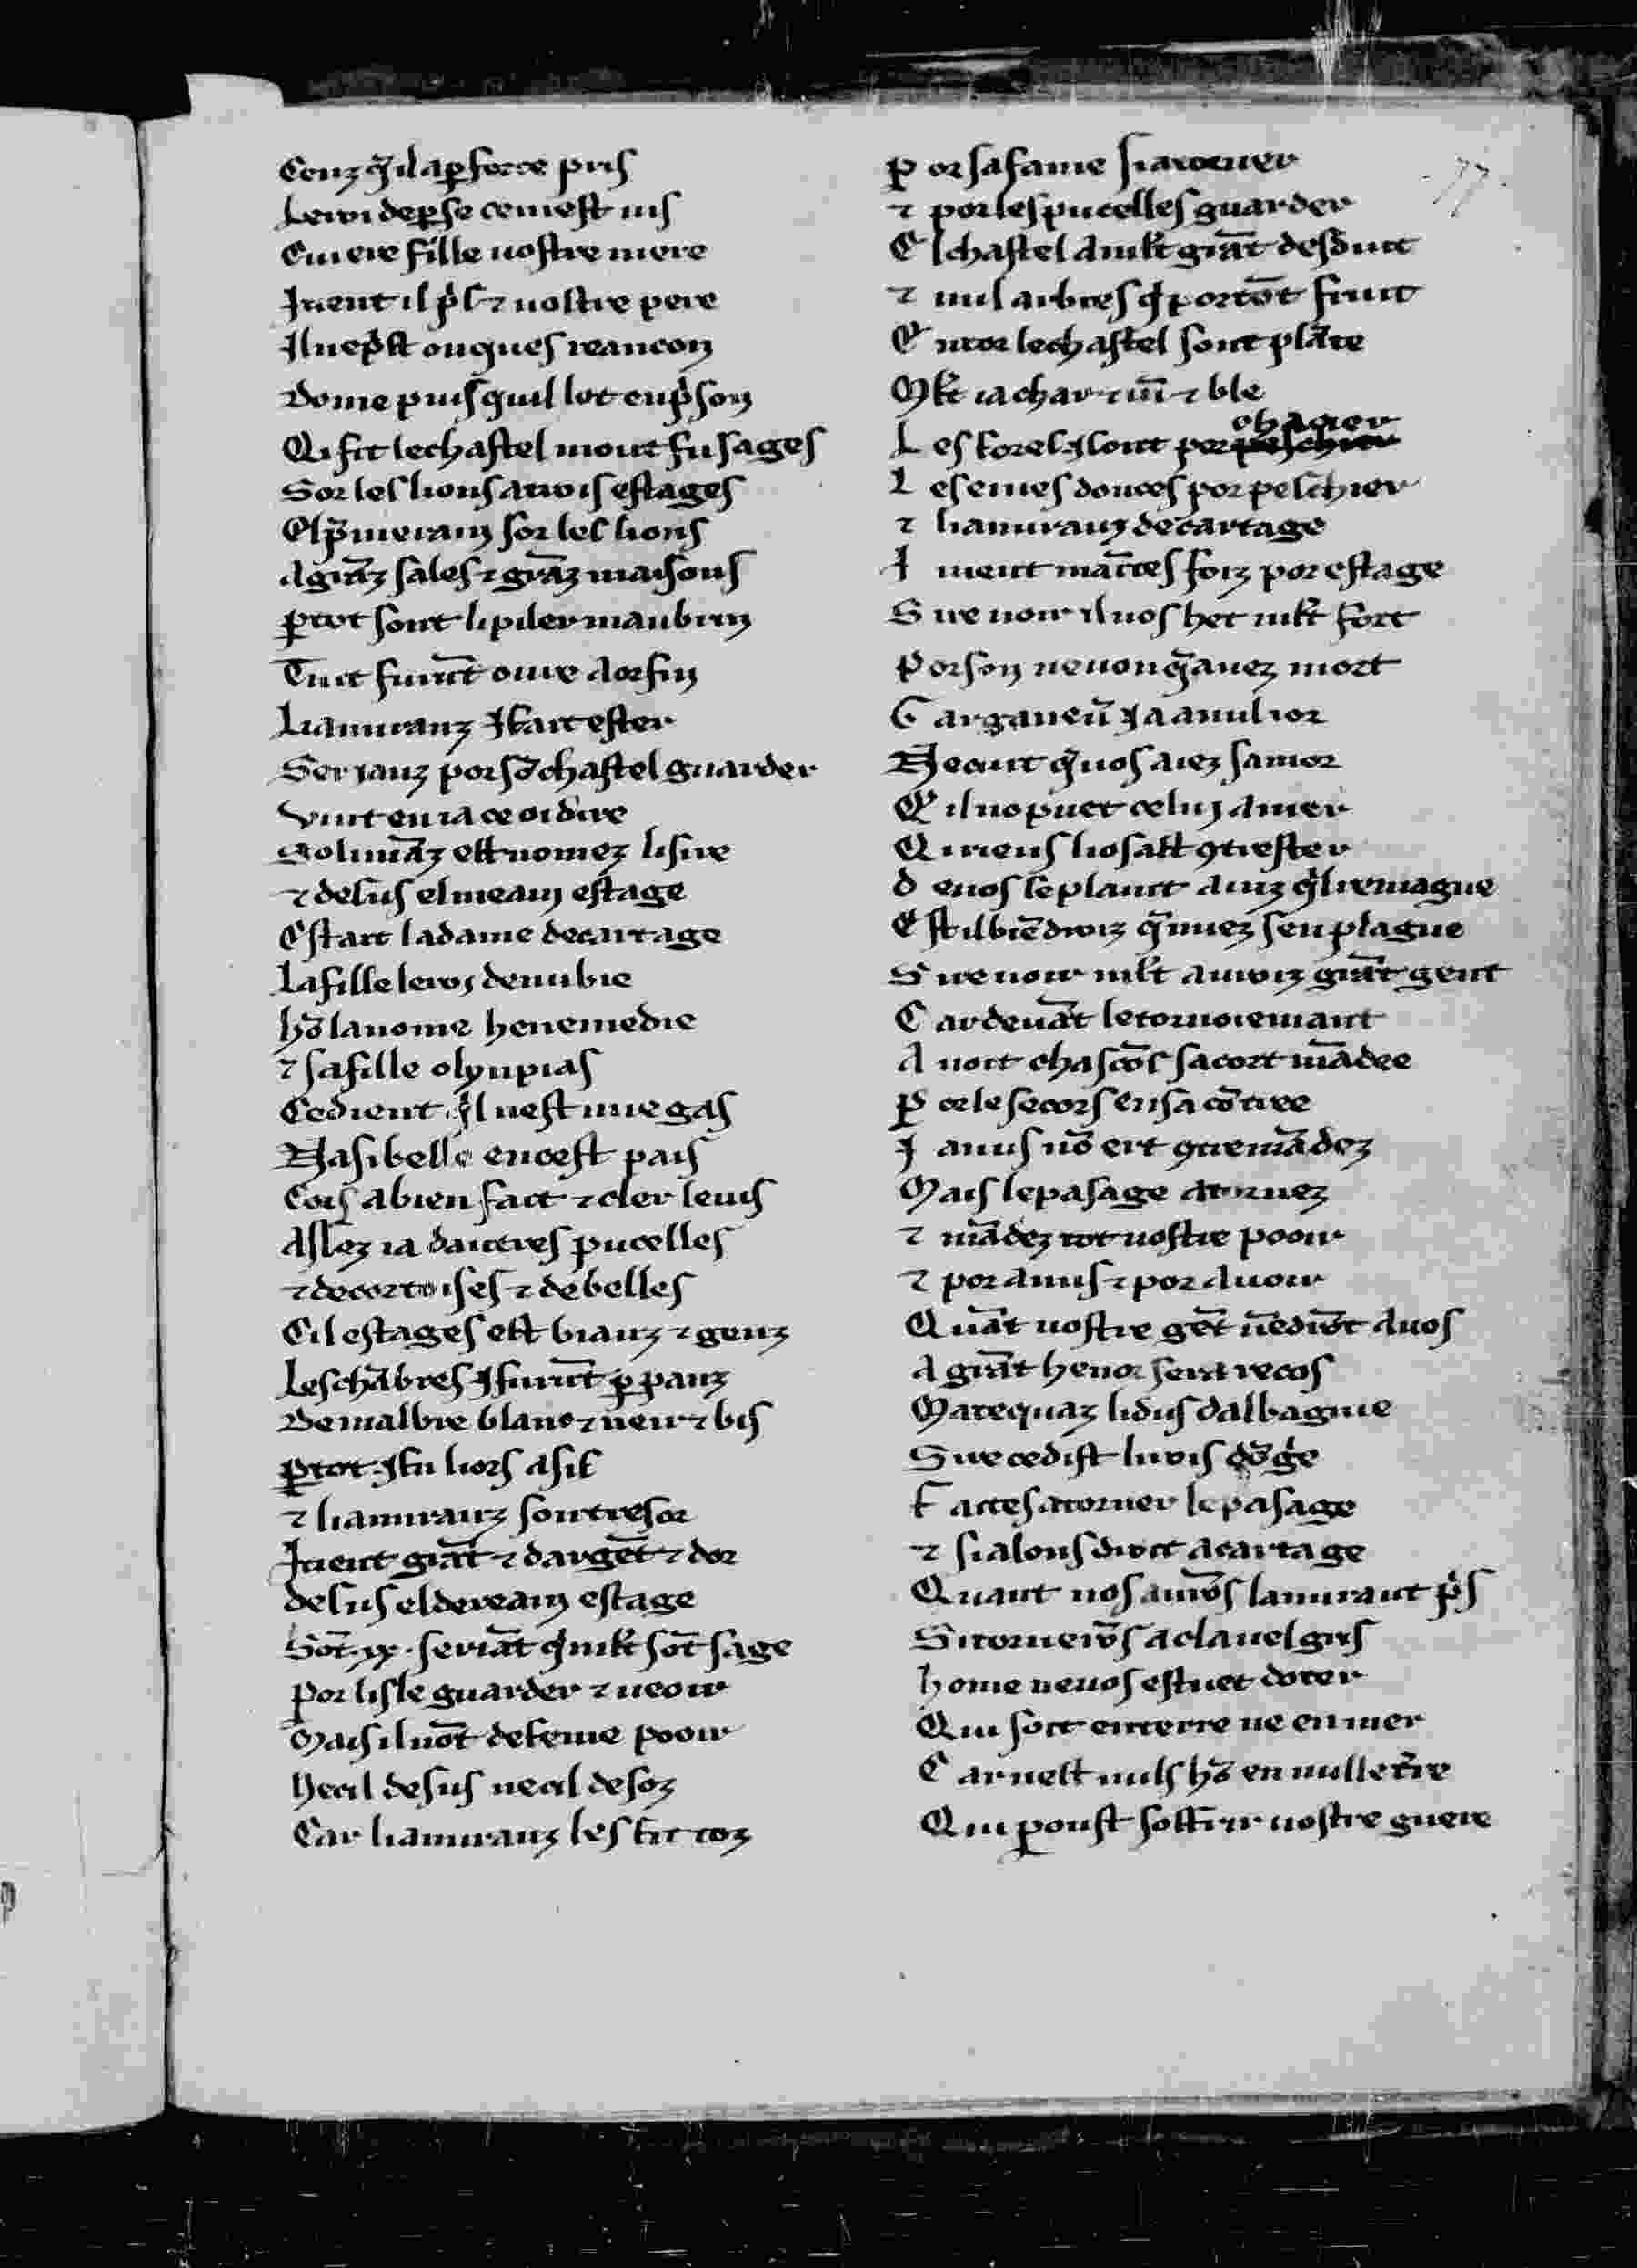 Cenz q̃ il a ꝑ force pris
Le roi de ꝑse cem est uis
Cui ere fille uostre mere
Iuent il pͥs ⁊ uostre pere
Il ne pͥst onques reancon
Dome puis quil lot en pͥson
Qi fit le chastel mout fu sages
Sor les lions a trois estages
El pͥmeram sor les lions
A grãz sales ⁊ grãz maisons
ꝑtot sont li piler maubrin
Tuit furent̄ oure dor fin
Liamiranz i fait ester
Seriauz por sõ chastel guarder
Vint en i a ce oi dire
Solimãz est nomez li sire
⁊ desus el meam estage
Estait la dame de cartage
La fille le roi de nubie
hõ la nome henemedie
⁊ sa fille olympias
Ce dient ql̃ nest mie gas
Na si belle en cest pais
Cors a bien fait ⁊ cler le uis
Assez i a dautres pucelles
⁊ de cortoises ⁊ de belles
Cil estages est biauz ⁊ genz
Les chãbres i furent̄ ꝑ panz
De malbre blanc ⁊ neir ⁊ bis
ꝑtot i fu liors asis
⁊ liamiranz son tresor
I tient grãt ⁊ dargẽt ⁊ dor
desus el deream estage
Sõt .xx. seriãt q̇ mlt̃ sõt sage
Por lisle guarder ⁊ ueoir
Mais il nõt de feme pooir
Ne cil desus ne cil desoz
Car liamiranz les fit toz
Por sa fame si atorner
⁊ por les pucelles guarder
El chastel a mlt̃ grãt desduit
⁊ mil arbres q̇ portõt fruit
Entor le chastel sont plãte
Mlt̃ i a char ⁊ uĩ ⁊ ble
Les forez i sont por chacier
Les eues douces por peschier
⁊ liamiranz de cartage
I uient maĩtes foiz por estage
Sire noir il uos het mlt̃ fort
Por son neuou q̃ auez mort
Garganeũ ia a nul ior
Ne cuit q̇ uos aiez samor
Qil no puet celui amer
Qi riens li osast ꝯtrester
de uos se plaint ainz qͥl remague
Est il biẽ droiz q̃ niuez sen plague
Sire noir mlt̃ a uoiz grãt gent
Car deuãt le tornoiemant
Auoit chascõs sa cort mãdee
ꝑ ce le secors en sa cõtree
Ia mis nõ ert ꝯtremãdez
Mais le pasage atornez
⁊ mãdez tot uostre pooir
⁊ por amis ⁊ por auoir
Quãt uostre gẽt uẽdrõt a uos
A grãt henor sera recos
Marequaz li dus dalbagnie
Sire ce dist li rois dõge
Faites atorner le pasage
⁊ si alons droit a cartage
Quant nos aurõs lamirant pͥs
Si tornerõs a clauelgris
home ne uos estuet doter
Qui soit en terre ne en mer
Car nest nuls hõ en nulle tr̃re
Qui poust soffrir uostre guere